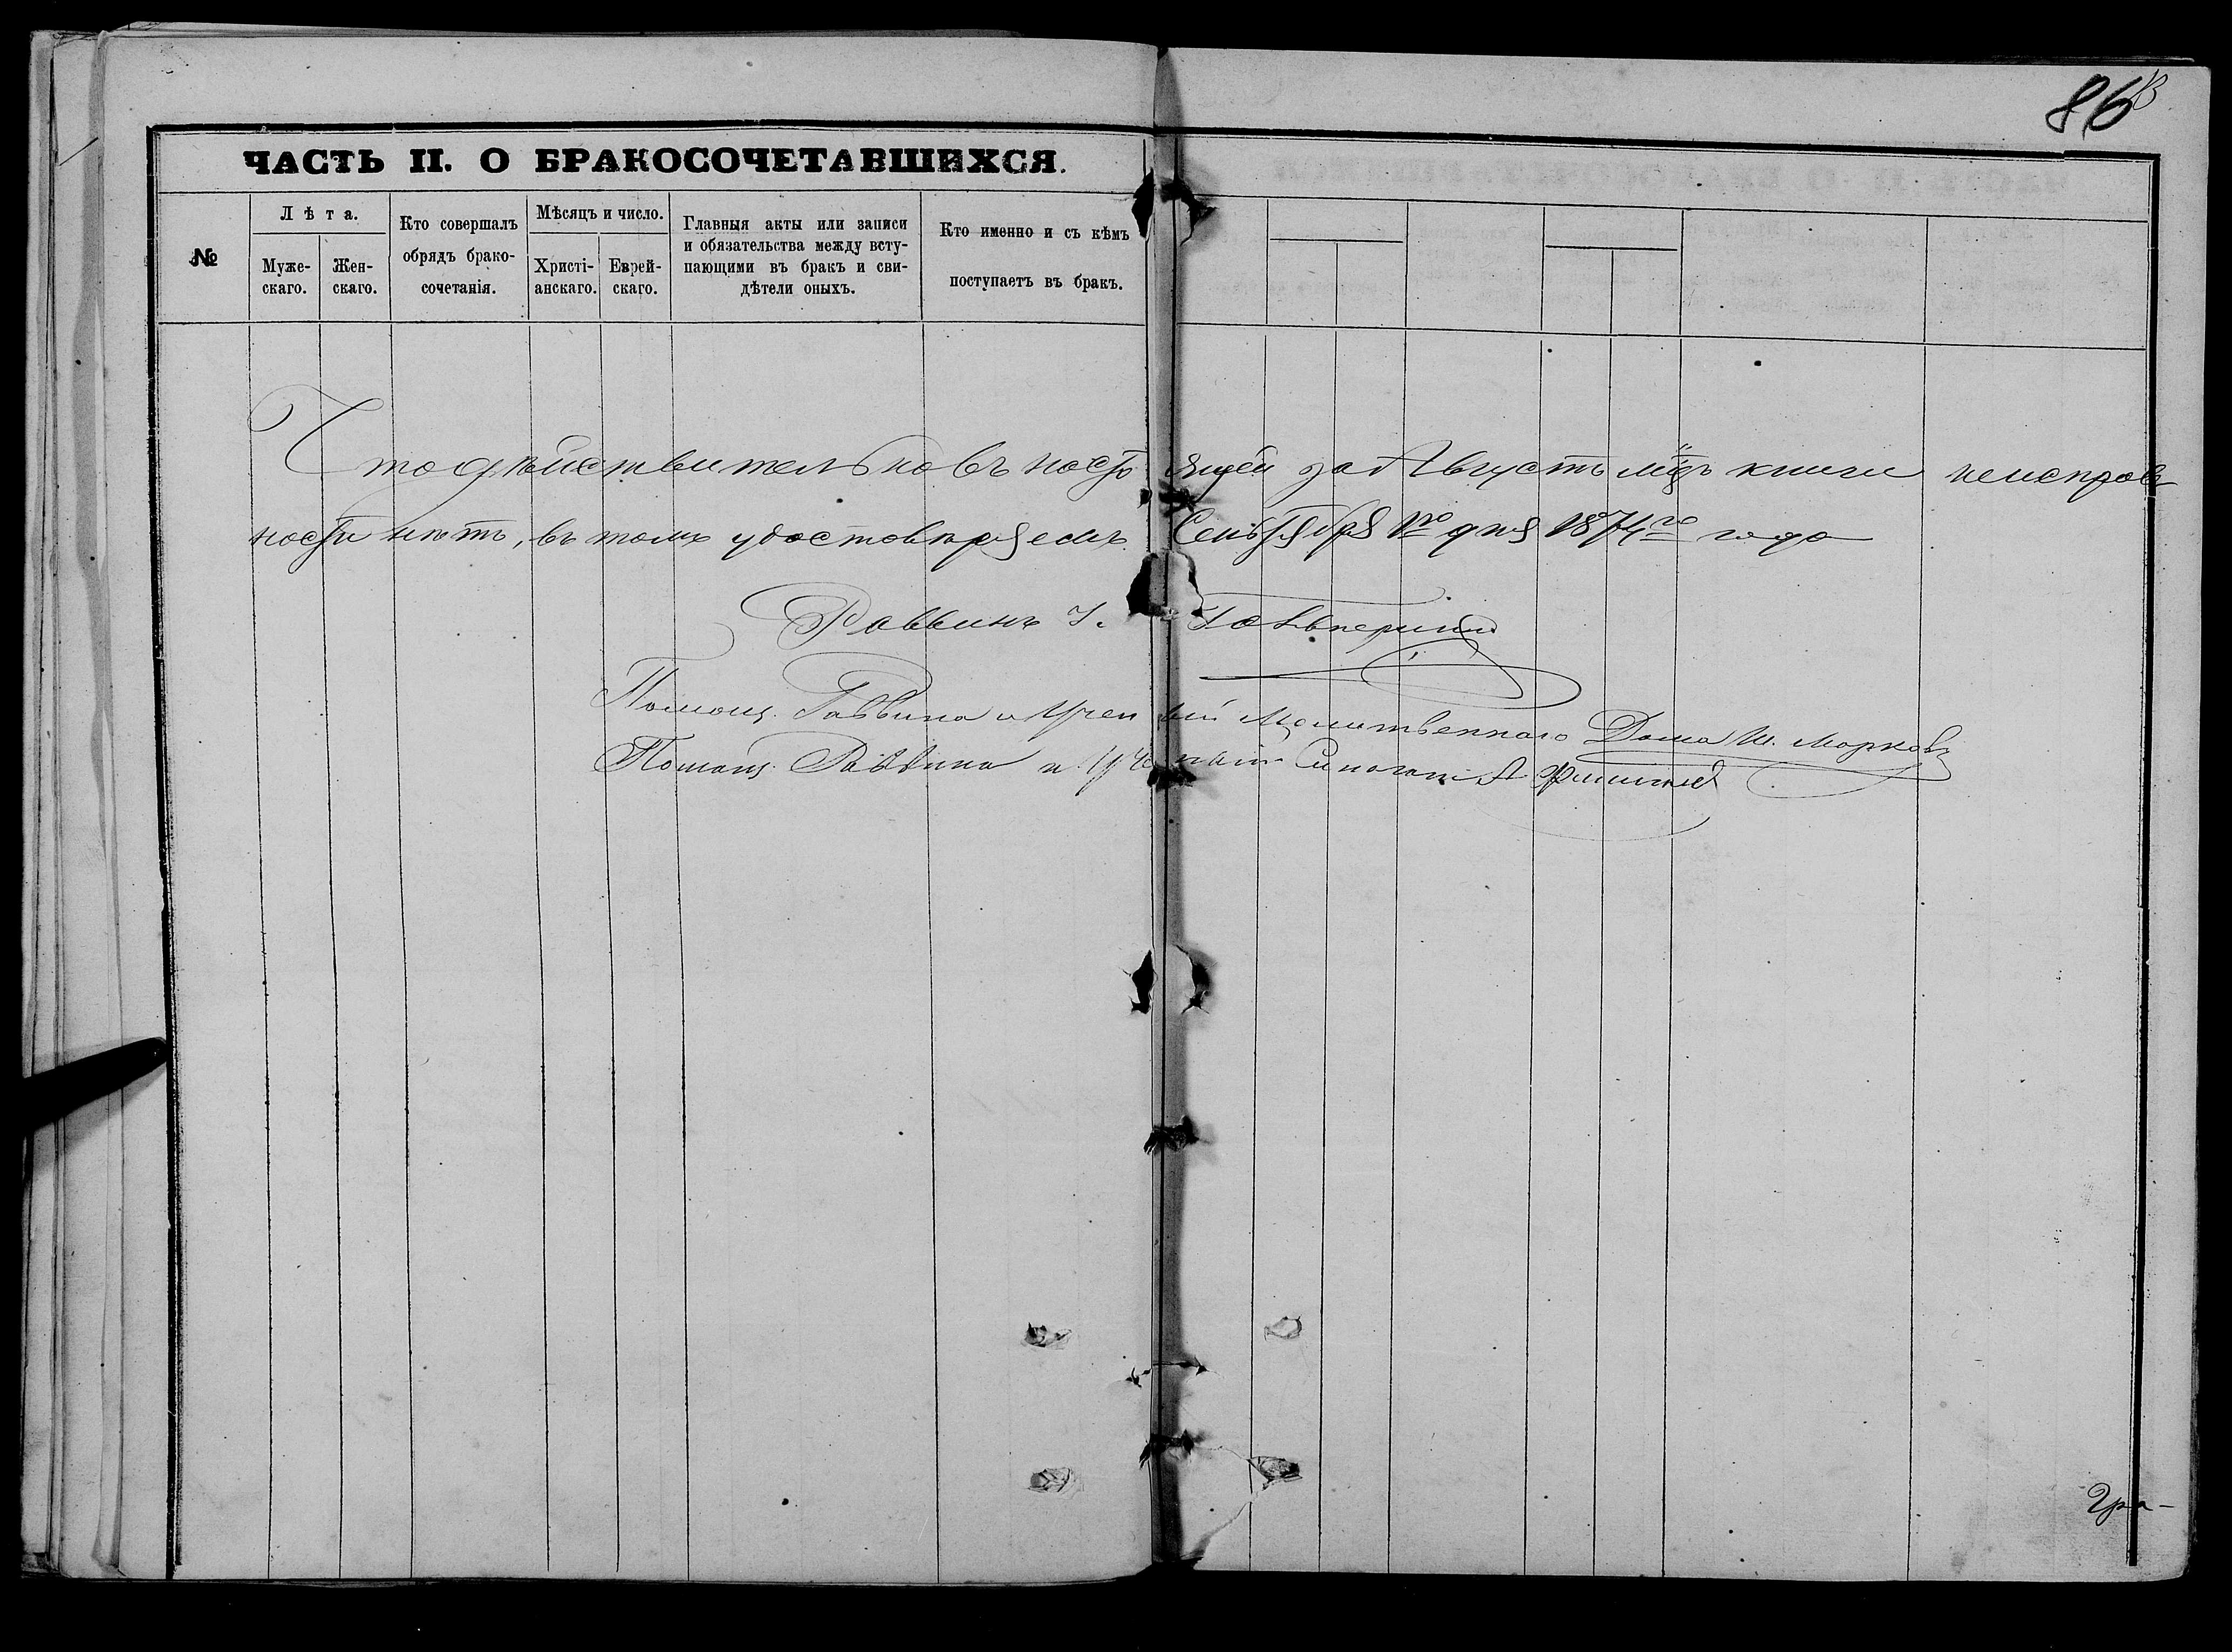 86
ЧАСТЬ II. О БРАКОСОЧЕТАВШИХСЯ.
№
Лѣта.
Муже-
скаго.
Жен-
скаго.
Кто совершалъ
обрядъ брако-
сочетанія.
Мѣсяцъ и число.
Христі-
анскаго.
Еврей-
скаго.
Главныя акты или записи
и обязательства между всту-
пающими въ бракъ и сви-
дѣтели оныхъ.
Кто именно и съ кѣмъ
поступаетъ въ бракъ.
Что дѣйствительно въ настоящей за Августъ мѣць книги неисправ-
ности нѣтъ, въ томъ удостовѣряемъ Сентября 1го дня 1874го года
Раввинъ
Помощ. Раввина и Ученый Молитвенного Дома Ш. Марковъ
Помощ. Раввина и Ученый
Гра-